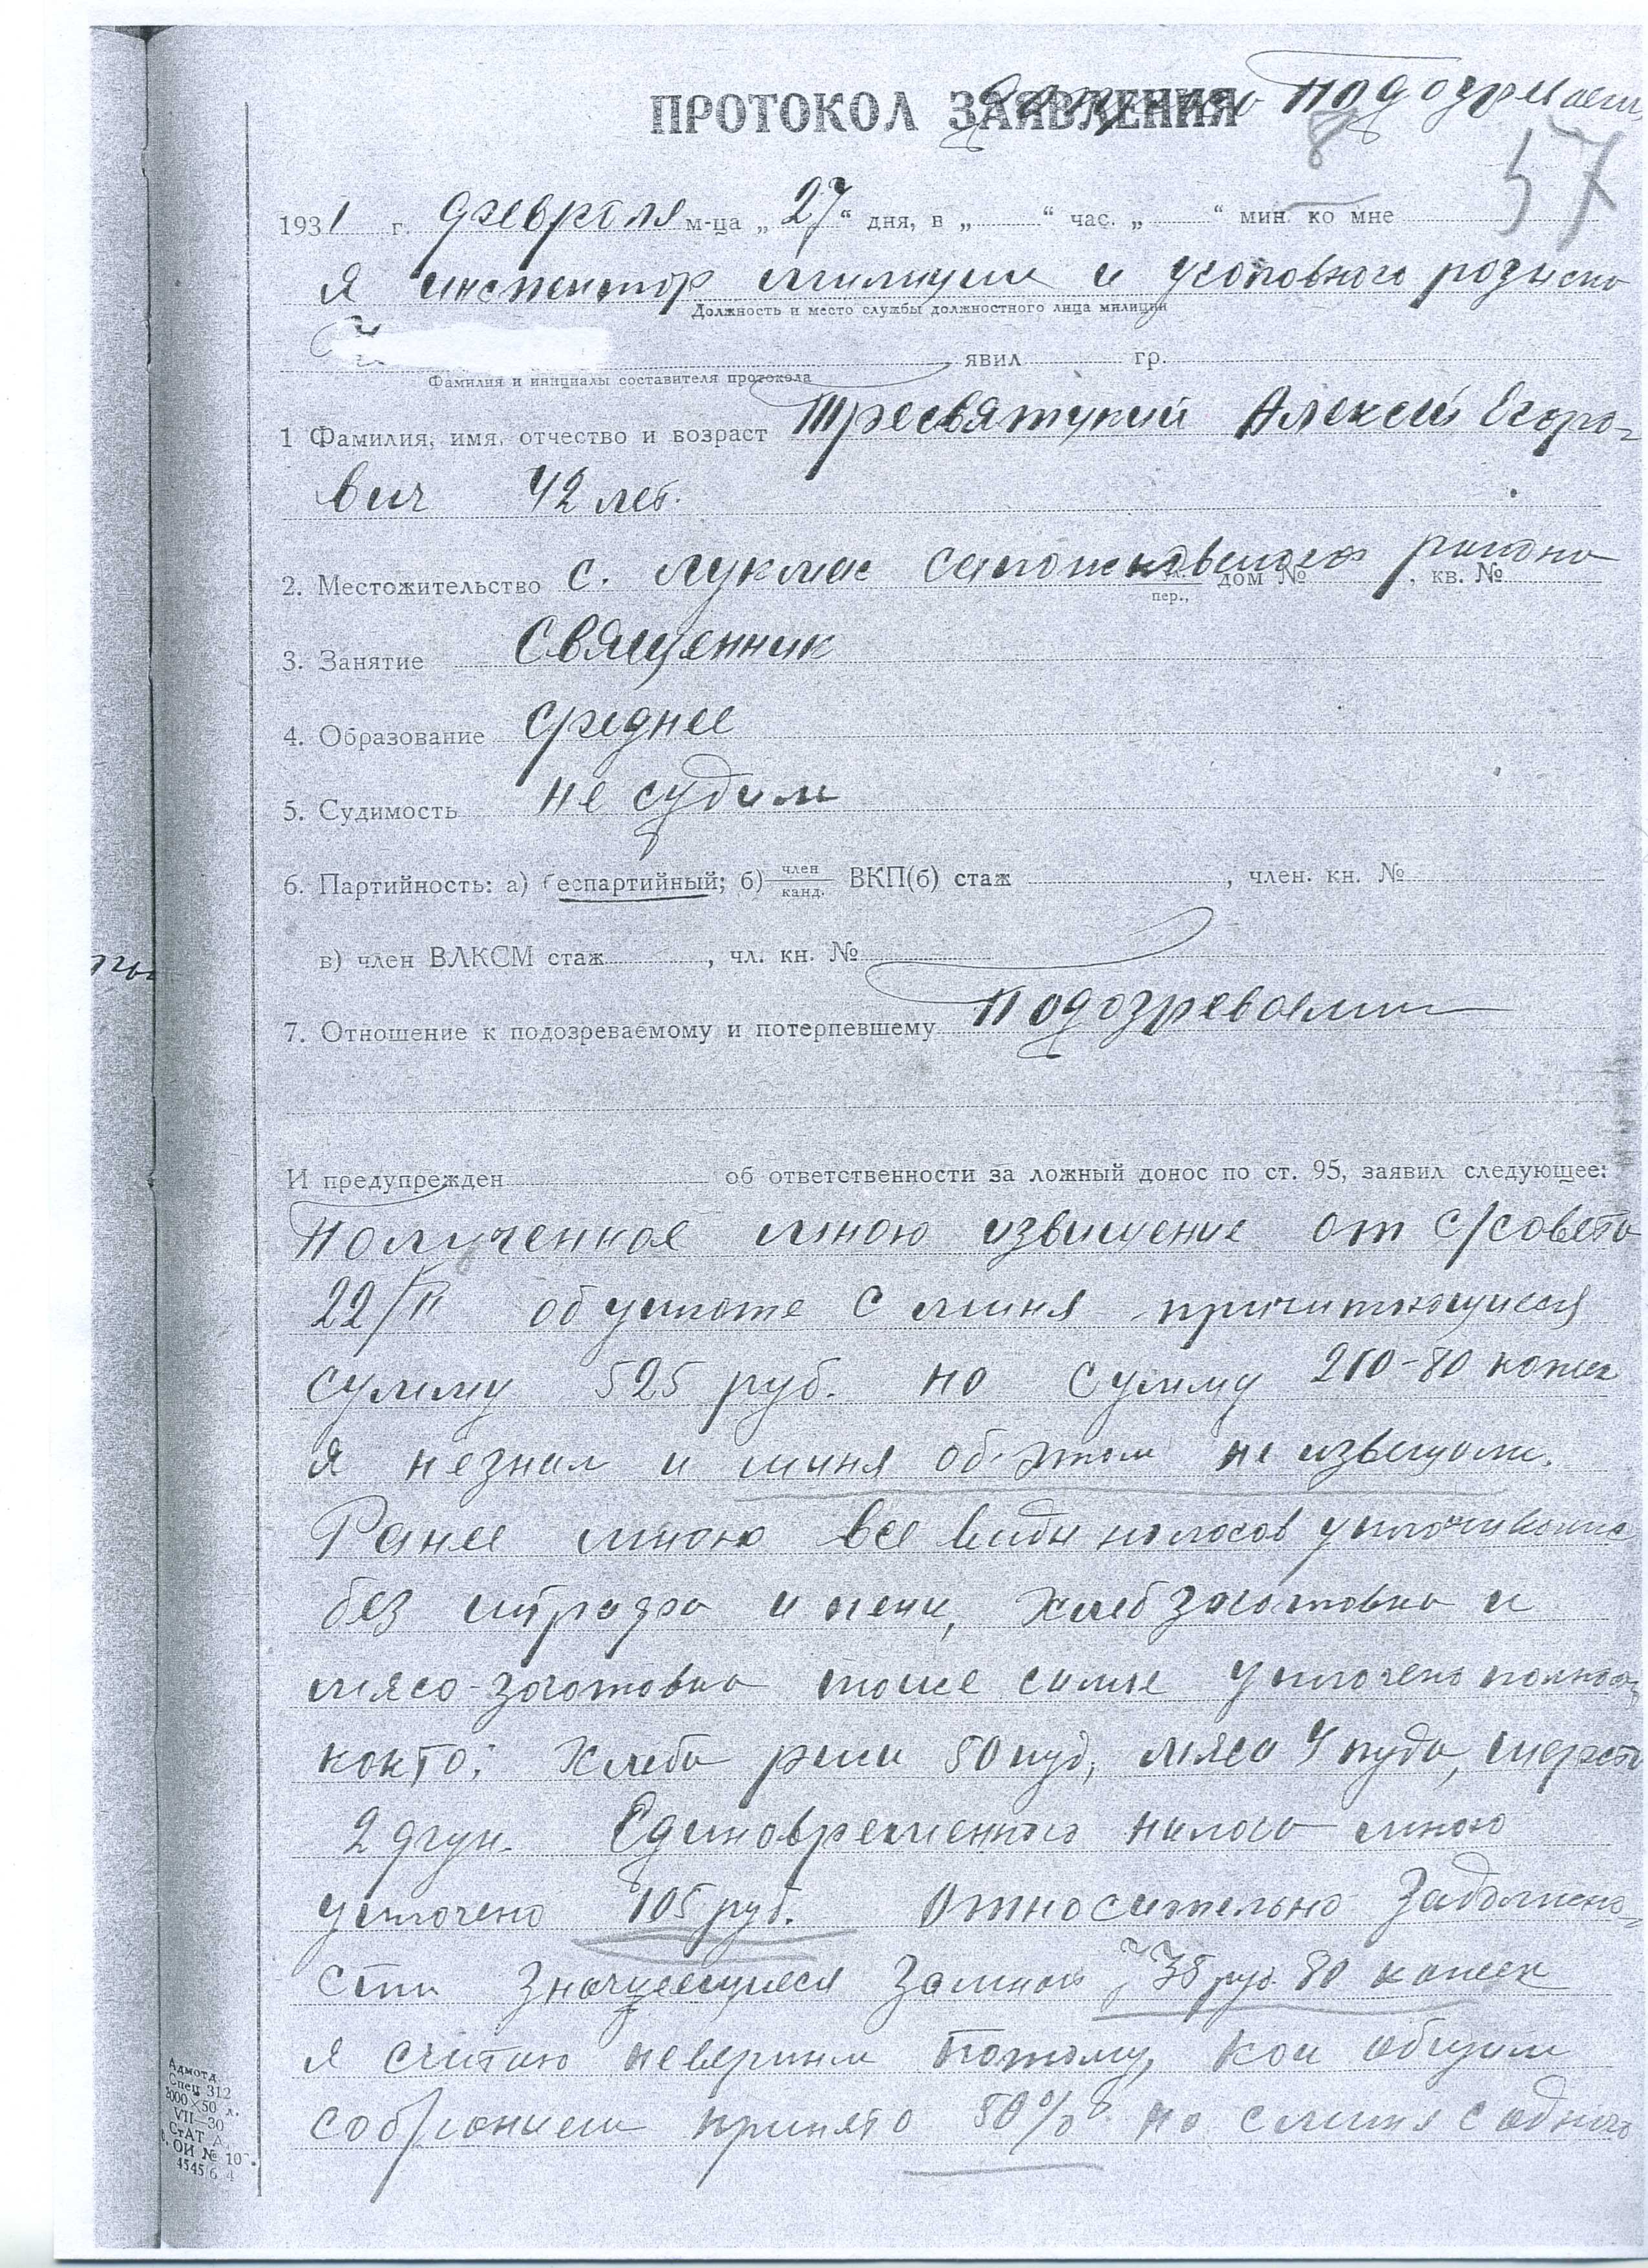 ПРОТОКОЛ ЗАЯВЛЕНИЯ подозреваем.
8
57
1931 г. февраля м-ца „27“ дня, в „ “ час. „ “ мин. ко мне
Я инспектор милиции и уголовного розыска
Должность и место службы должностного лица милиции
явил гр.
Фамилия и инициалы составителя протокола
1 Фамилия, имя, отчество и возраст Тресвятский Алексей Егоро-
вич 42 лет.
2. Местожительство с. Лукмос Сапожковского района дом № , кв. №
пер.,
3. Занятие Священник
4. Образование среднее
5. Судимость не судим
6. Партийность: а) беспартийный; б) член канд. ВКП(б) стаж , член. кн. №
в) член ВЛКСМ стаж , чл. кн. №
7. Отношение к подозреваемому и потерпевшему Подозреваемый
И предупрежден об ответственности за ложный донос по ст. 95, заявил следующее:
Полученное мною извещение от с/совета
22/II об уплате с меня причитающиеся
сумму 525 руб. но сумму 210-80 копеек
я незнал и меня об этом не извещали.
Ранее мною все виды налогов уплачивались
без штрафа и пени, хлебзаготовка и
мясо-заготовка тоже самое уплочено полност
както: Хлеба ржи 50 пуд, мяса 4 пуда, шерсть
2 фун. Единовременного налога мною
уплочено 105 руб. Относительно Задолжено-
сти значущемуся Замной 735 руб. 80 копеек
я считаю неверным Потому, как общим
собранием принято 50% но с меня с одного
Адмотд.
Спец 312
2000×50 л.
VII—30
СтАТ А.
ОИ № 10
4545/6 4